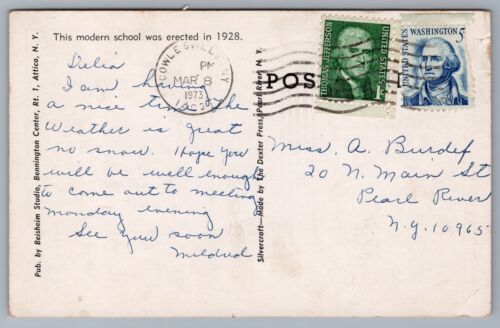 This modern school was erected in 1928.
COWLESVILLE, NY
PM
MAR 8
1973
14037
Delia
I am having
a nice time the
Weather is great
no snow. Hope you
will be well enough
to come out to meeting
monday evening
See you soon
Mildred
Pub. by Beisheim Studio, Bennington Center, Rt. 1, Attica, N. Y.
Silvercraft—Made by The Dexter Press, Pearl River, N. Y.
POS
THOMAS JEFFERSON
UNITED STATES
1c
WASHINGTON 5
UNITED STATES
Miss. A. Burdef
20 N. Main St
Pearl River
N.y. 10965